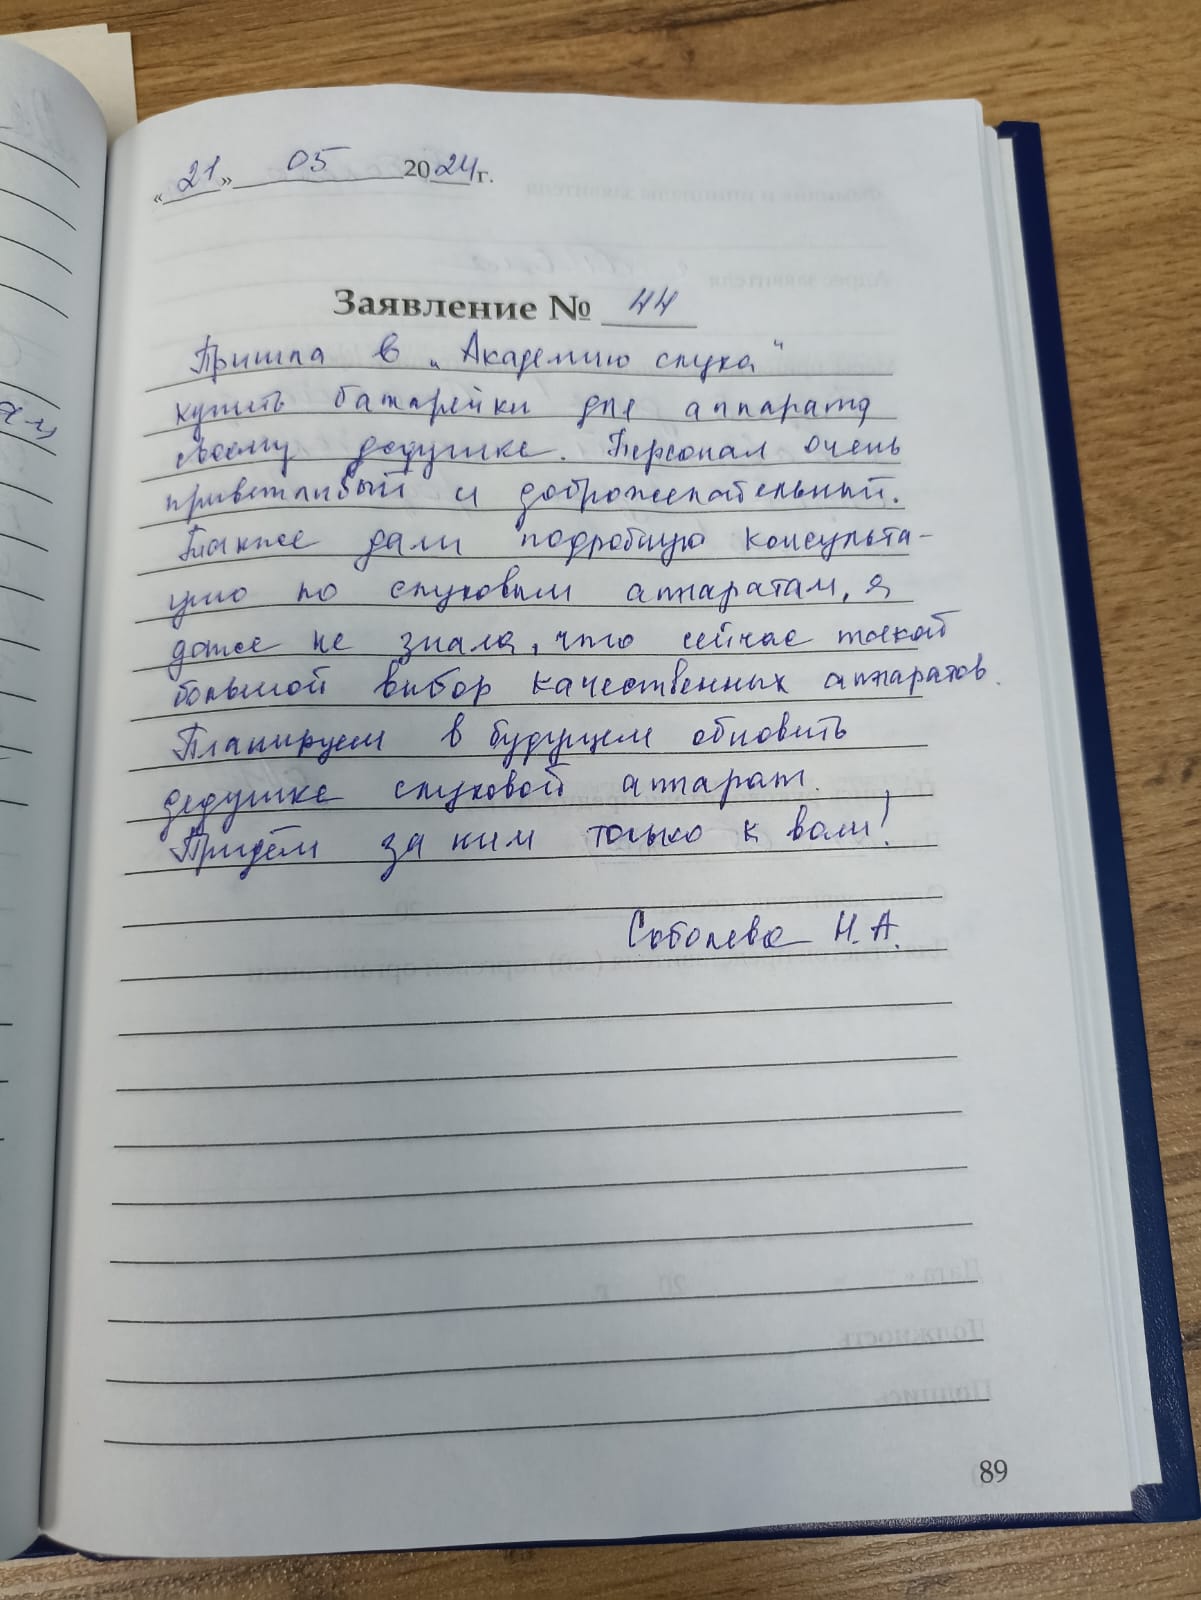 «21» 05 2024г.
Заявление № 44
Пришла в „Академию слуха"
купить батарейки для аппарата
своему дедушке. Персонал очень
приветливый и доброжелательный.
Также дали подробную консульта-
цию по слуховым аппаратам, я
даже не знала, что сейчас такой
большой выбор качественных аппаратов.
Планируем в будущем обновить
дедушке слуховой аппарат.
Придём за ним только к вам!
Соболева Н.А.
89